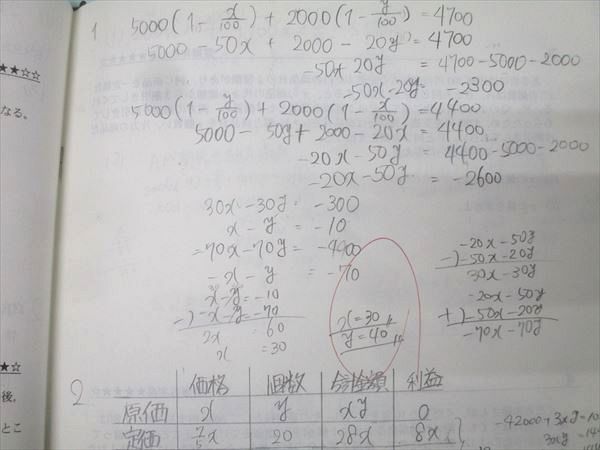 1 5000(1 - x/100) + 2000(1 - y/100) = 4700
5000 - 50x + 2000 - 20y = 4700
50x 20y = 4700 - 5000 - 2000
-50x - 20y = -2300
5000(1 - y/100) + 2000(1 - x/100) = 4400
5000 - 50y + 2000 - 20x = 4400
-20x - 50y = 4400 - 5000 - 2000
-20x - 50y = -2600
30x - 30y = -300
x - y = -10
= 70x - 70y = -4900
-x - y = -70
x - y = -10
-) -x - y = -70
2x = 60
x = 30
x = 30
y = 40
-20x - 50y
-) -50x - 20y
30x - 30y
-20x - 50y
+) -50x - 20y
-70x - 70y
★★☆☆
なる。
★☆
後、
とこ
2
価格 個数 合計金額 利益
原価 x y xy 0
定価 7/5x 20 28x 8x
-42000 + 3xy = 10